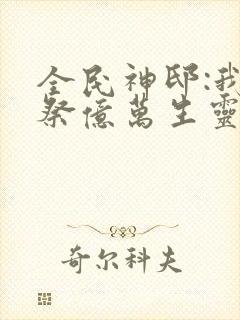 全民神邸:我
祭億萬生靈
奇尔科夫